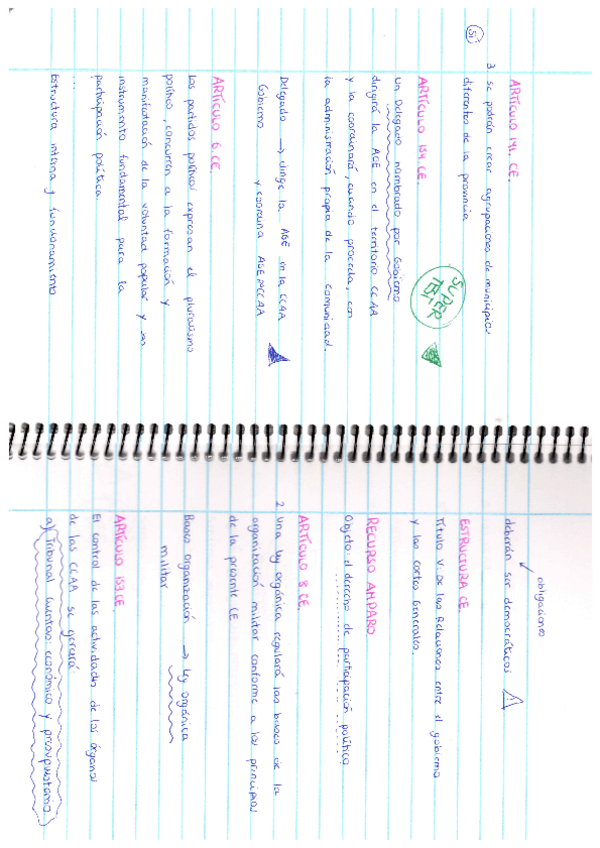 51
ARTÍCULO 141. CE.
3. se podrán crear agrupaciones de municipios
diferentes de la provincia
ARTÍCULO 154. CE.
SUPER
TEST
Un Delegado nombrado por Gobierno
dirigirá la AGE en el territorio CCAA
y la coordinará, cuando proceda, con
la administración propia de la comunidad.
Delegado → dirige la AGE en la CCAA
Gobierno y coordina AGE CCAA
ARTÍCULO 6. CE.
Los partidos políticos expresan el pluralismo
político, concurren a la formación y
manifestación de la voluntad popular y son
instrumento fundamental para la
participación política
...
Estructura interna y funcionamiento
obligaciones
deberán ser democráticos
ESTRUCTURA CE.
Título V. De las Relaciones entre el gobierno
y las Cortes Generales.
RECURSO AMPARO
Objeto: el derecho de participación política
ARTÍCULO 8 CE.
2. Una ley orgánica regulará las bases de la
organización militar conforme a los principios
de la presente CE
Bases organización → ley orgánica
militar
ARTÍCULO 153. CE.
El control de las actividades de los órganos
de las CCAA se ejercerá
a) Tribunal Cuentas: económico y presupuestario.